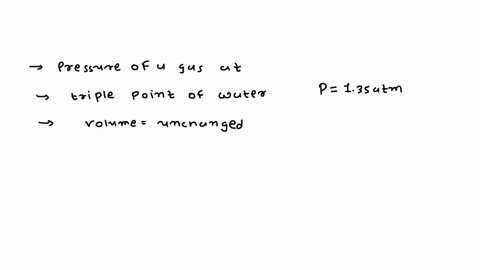 → Pressure of a gas at
→ triple point of water P = 1.35atm
→ volume = unchanged